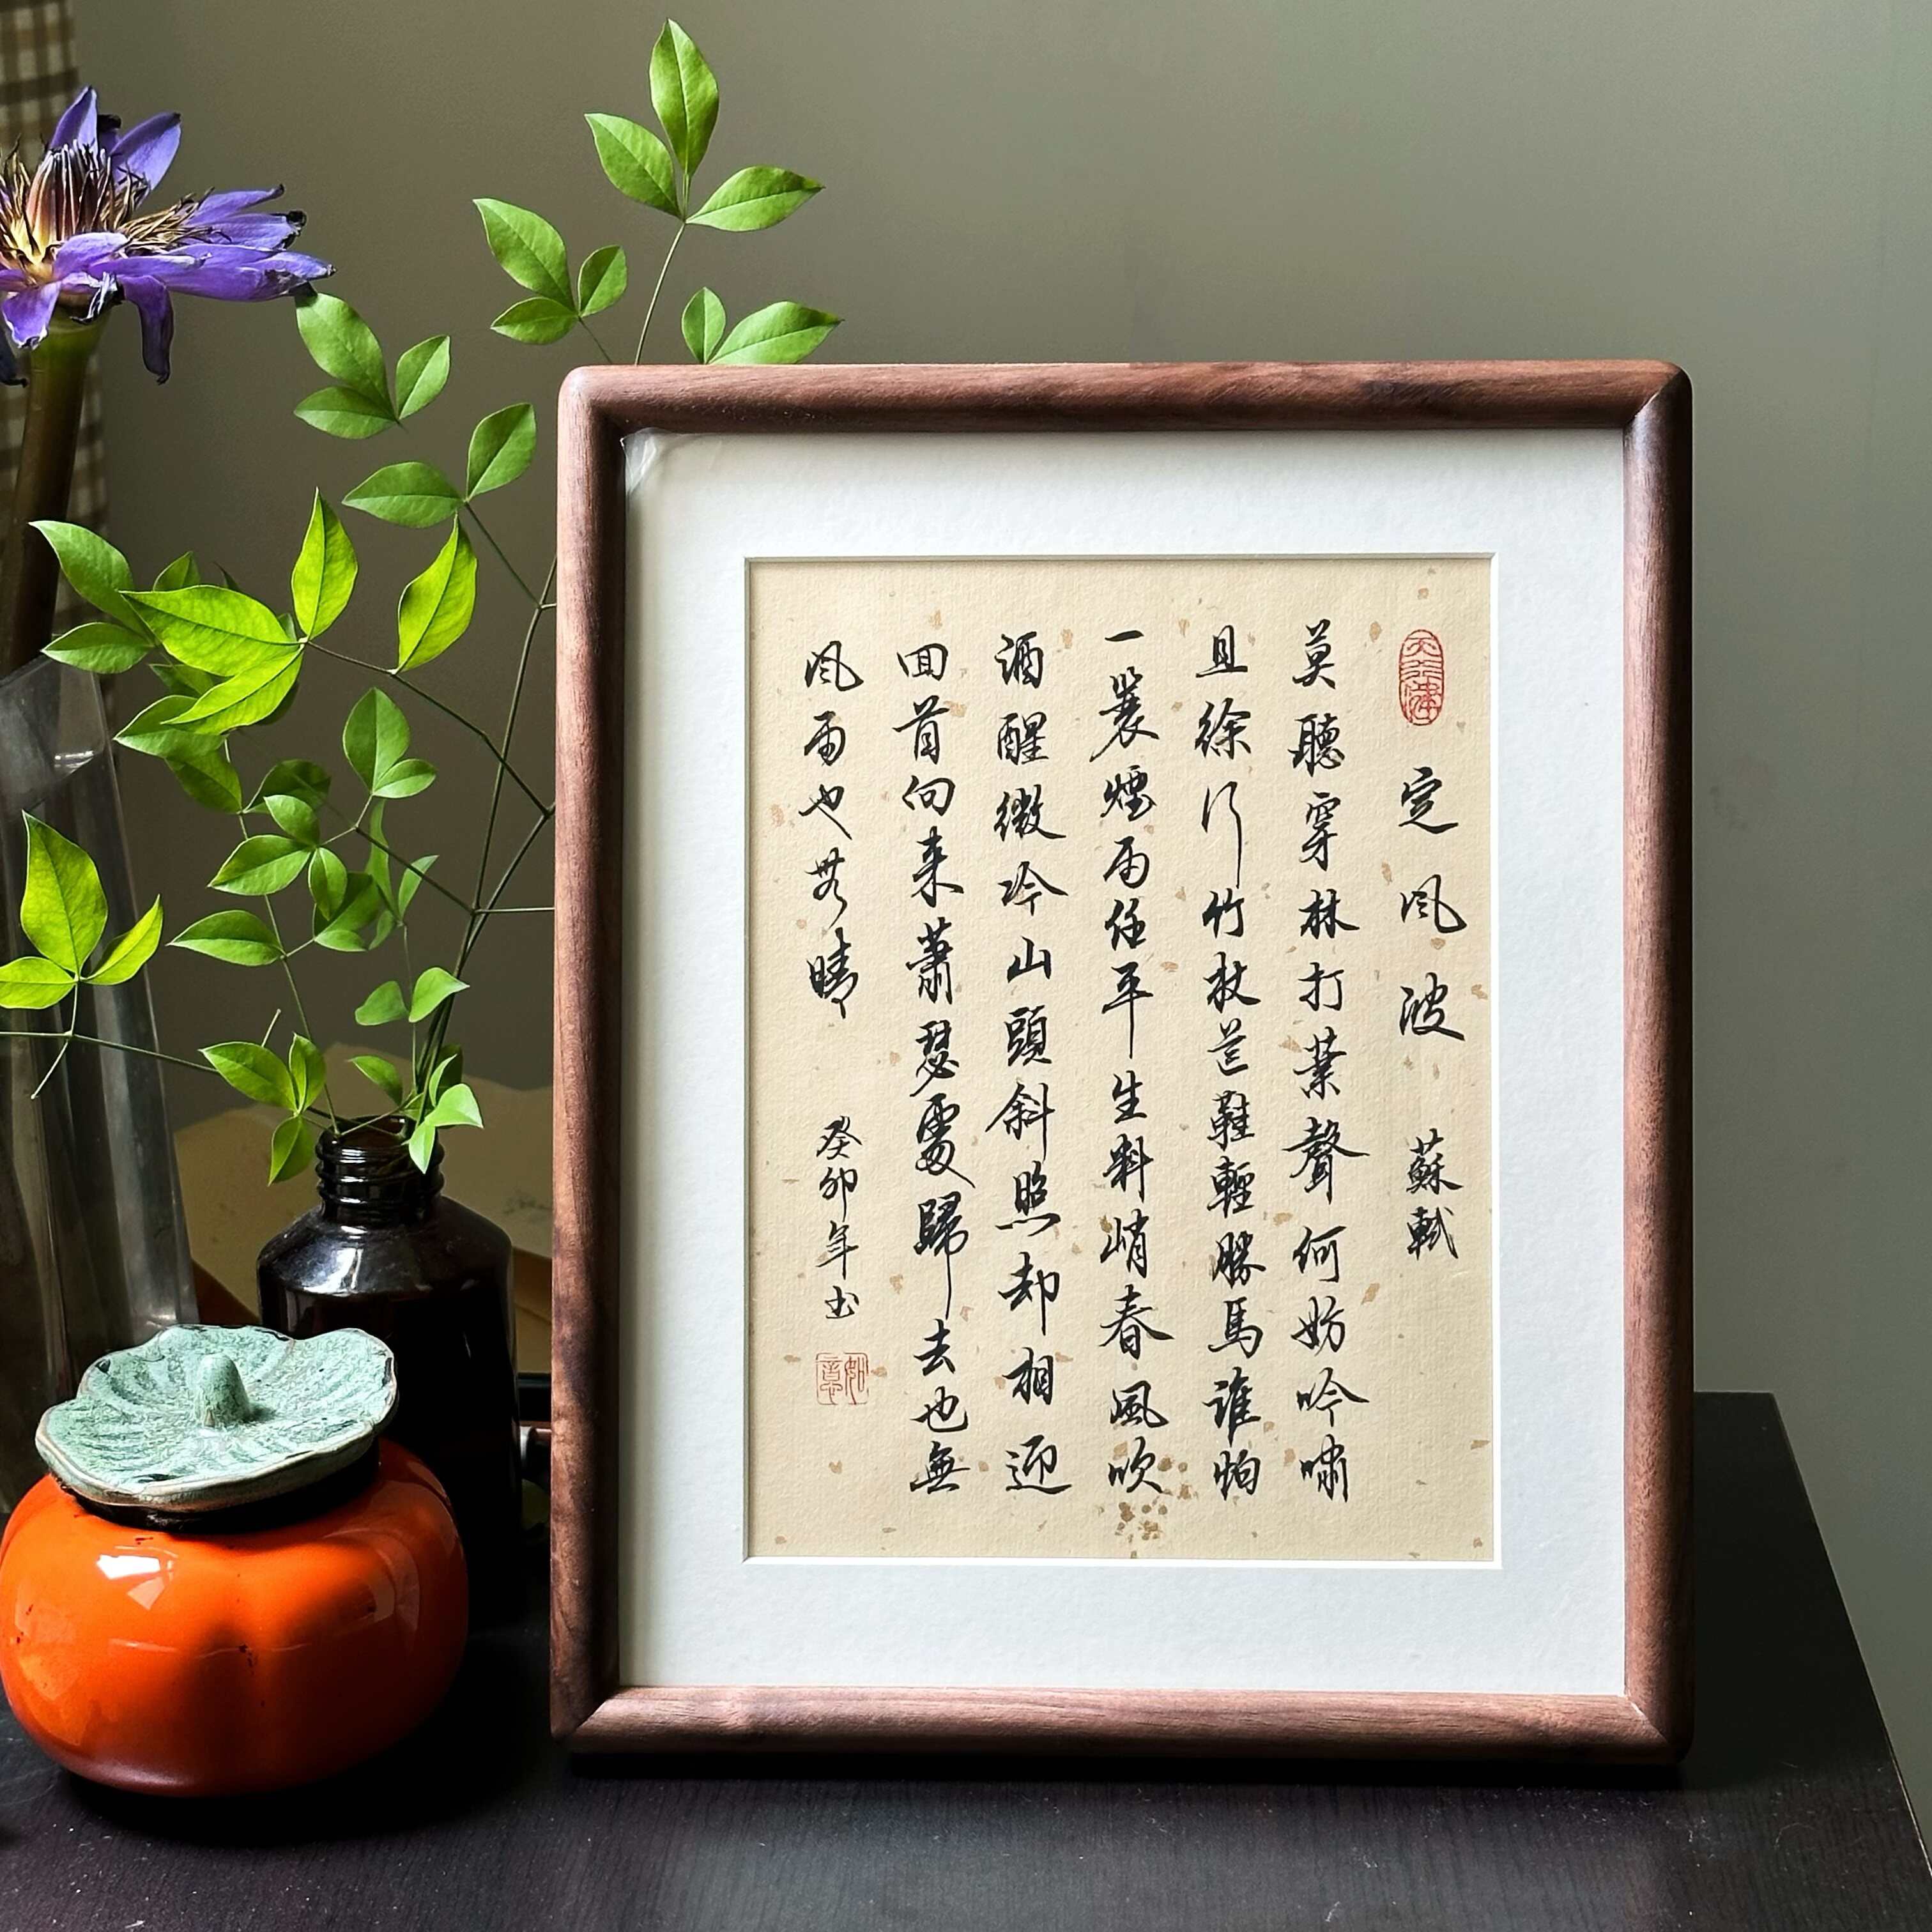 定風波 蘇軾
莫聽穿林打葉聲何妨吟嘯
且徐行竹杖芒鞋輕勝馬誰怕
一蓑煙雨任平生料峭春風吹
酒醒微冷山頭斜照却相迎
回首向来蕭瑟處歸去也無
風雨也無晴
癸卯年書
如意